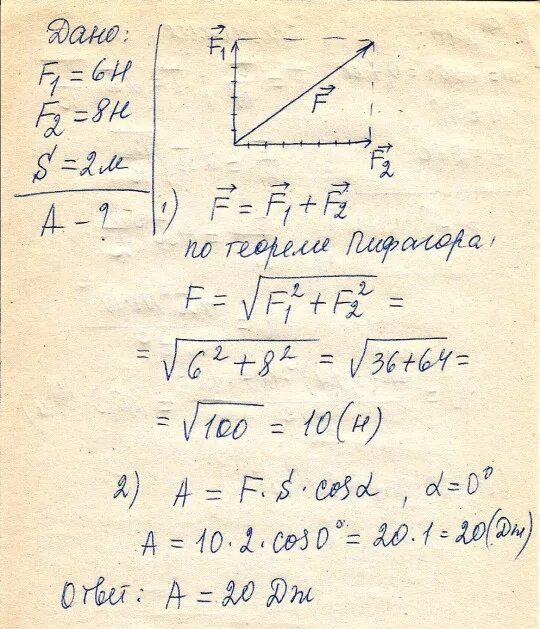 Дано:
F₁ = 6Н
F₂ = 8Н
S = 2м
A – ?
F⃗₁
F⃗
F⃗₂
1) F⃗ = F⃗₁ + F⃗₂
по теореме Пифагора,
F = √(F₁² + F₂²) =
= √(6² + 8²) = √(36+64) =
= √100 = 10 (Н)
2) A = F · S · cosα , α = 0°
A = 10 · 2 · cos0° = 20 · 1 = 20 (Дж)
Ответ: A = 20 Дж